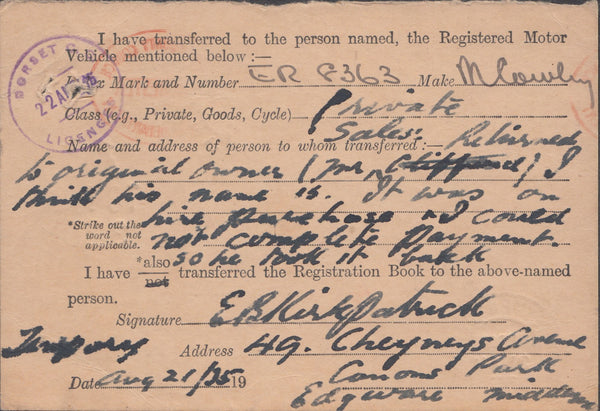 I have transferred to the person named, the Registered Motor
Vehicle mentioned below :—
Index Mark and Number ER 8363 Make M Cowley
Class (e.g., Private, Goods, Cycle) Private
Name and address of person to whom transferred :— Sales. Returned
to original owner (Mr. ) I
think his name is. It was on
hire purchase & I could
*Strike out the
word not
applicable.
not complete payment.
so he took it back
*also
I have not transferred the Registration Book to the above-named
person.
Signature E B Kirkpatrick
Temporary Address 49. Cheyneys Avenue
Canons Park
Date Aug 21/35 19
Edgware Middx
DORSET C.C.
22 AUG 35
LICENC